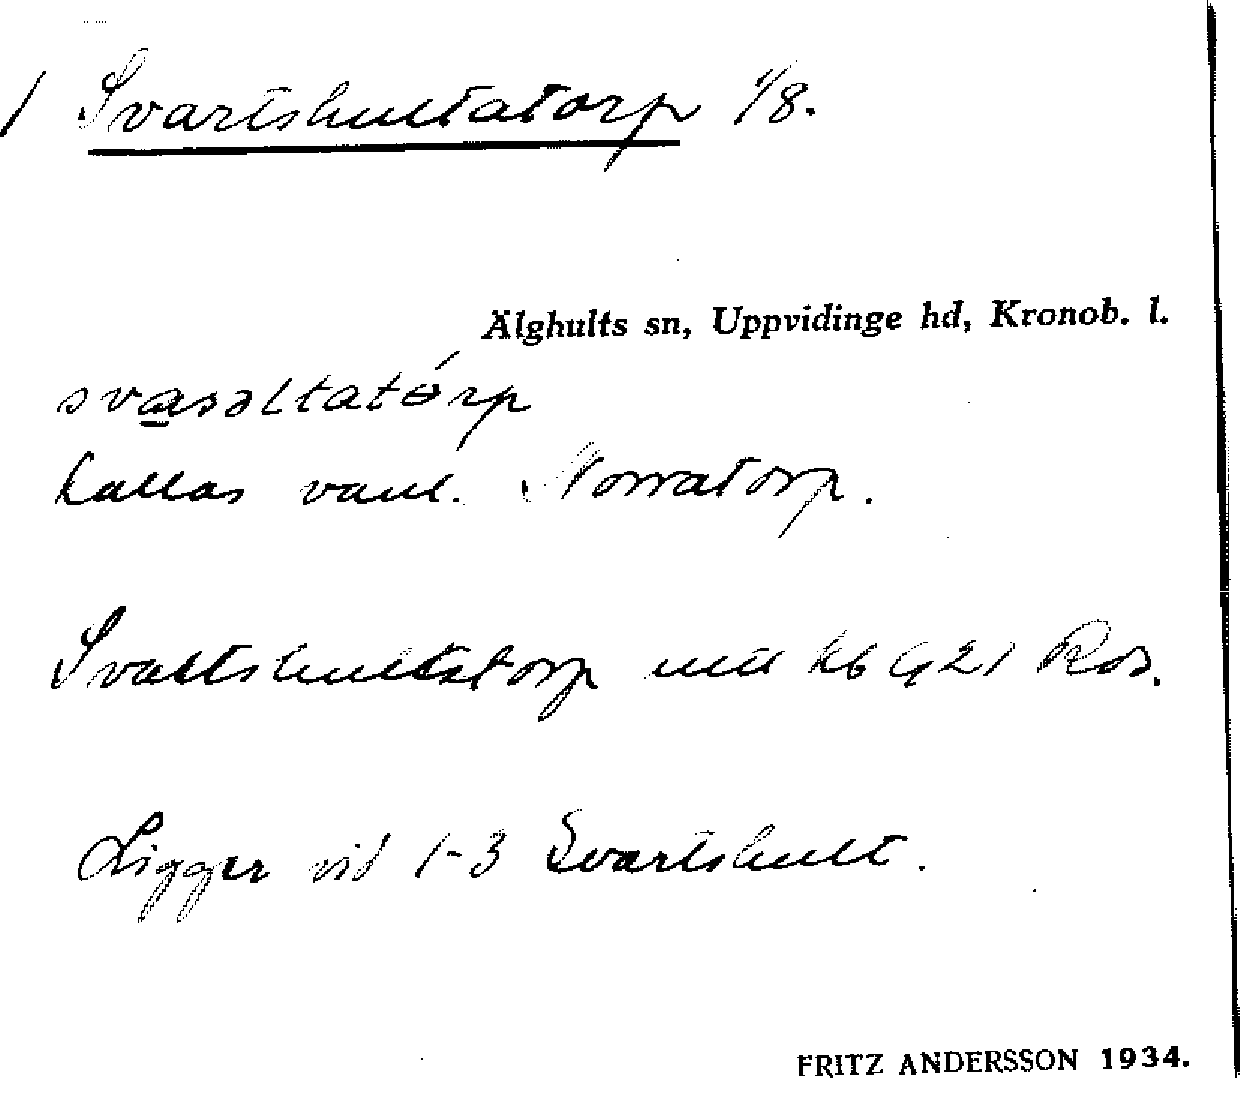 / Svartshultatorp 1/8.
Älghults sn, Uppvidinge hd, Kronob. l.
svasəltatórp
kallas vanl. Norratorp.
Svartshultstorp Kb G21 Ros.
Ligger vid 1-3 Svartshult.
FRITZ ANDERSSON 1934.